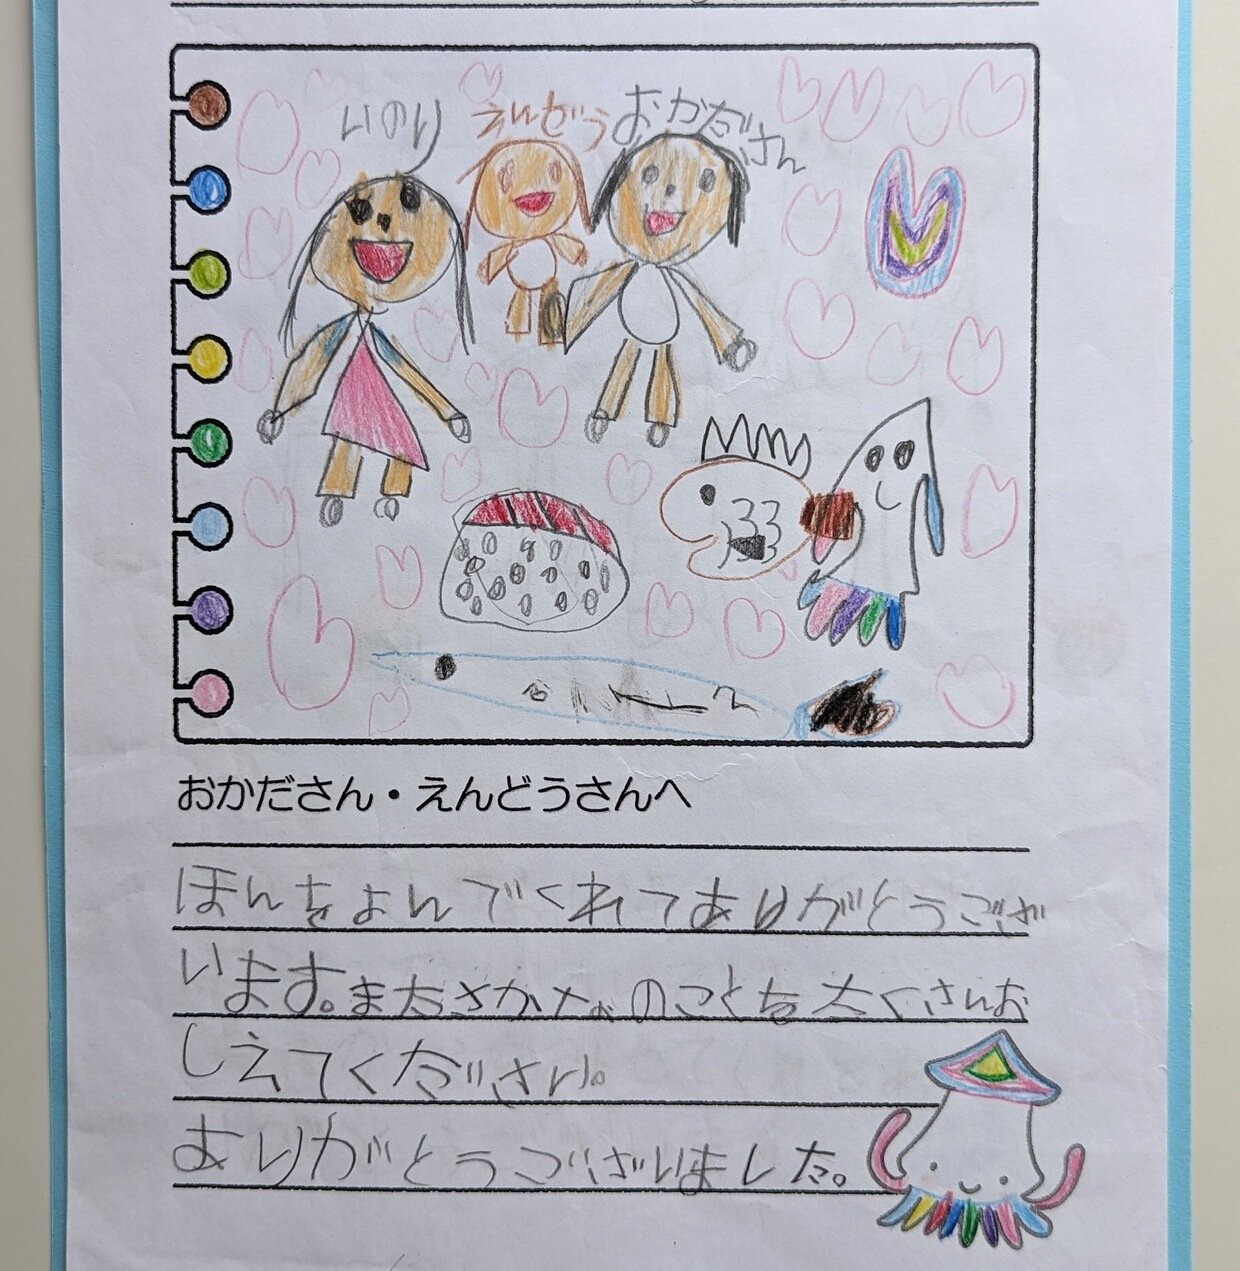 いのり えんどう おかださん
おかださん・えんどうさんへ
ほんをよんでくれてありがとうござ
います。またさかなのことをたくさんお
しえてください。
ありがとうございました。